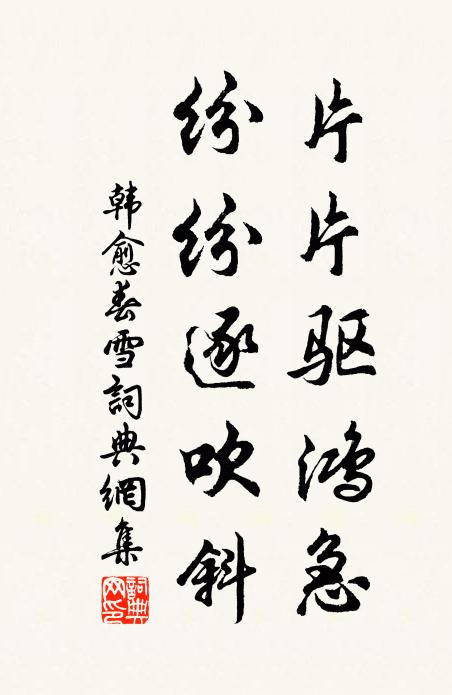 片片驱鸿急
纷纷逐吹斜
韩愈春雪詞典網集
詞典网印